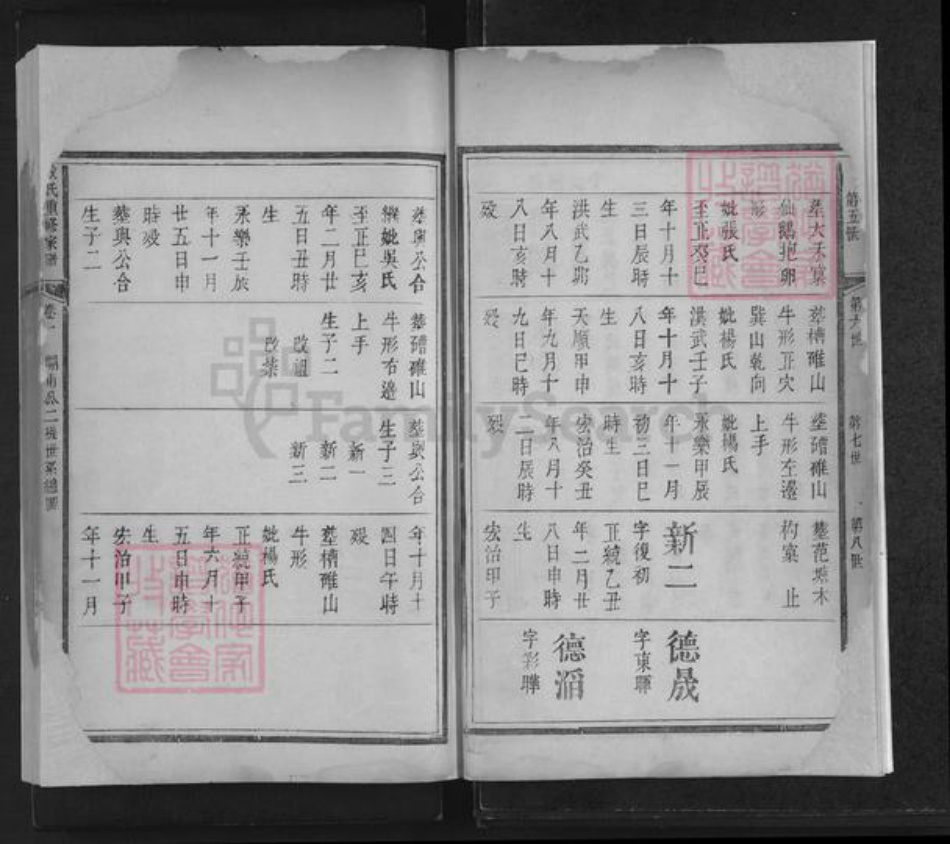 第五世
墓大禾窠
仙鵝抱卵
形
妣張氏
至正癸巳
年十月十
三日辰時
生
洪武乙卯
年八月十
八日亥時
歿
第六世
葬槽碓山
牛形正穴
巽山乾向
妣楊氏
洪武壬子
年十月十
八日亥時
生
天順甲申
年九月十
九日巳時
歿
第七世
塟磄碓山
牛形左邊
上手
妣楊氏
永樂甲辰
年十一月
初三日巳
時生
宏治癸丑
年八月十
二日辰時
歿
第八世
墓范塘木
杓窠 止
新二
字復初
正統乙丑
年二月廿
八日申時
生
宏治甲子
德晟
字東暉
德滔
字彩聯
葬與公合
繼妣吳氏
至正己亥
年二月廿
五日丑時
生
永樂壬辰
年十一月
廿五日申
時歿
墓與公合
生子二
葬磄碓山
牛形右邊
上手
生子二
改祖
改榮
墓與公合
生子三
新一
新二
新三
年十月十
四日午時
歿
葬槽碓山
牛形
妣楊氏
正統甲子
年六月十
五日申時
生
宏治甲子
年十一月
氏重修家譜
卷一
二機世系總圖
FamilySearch